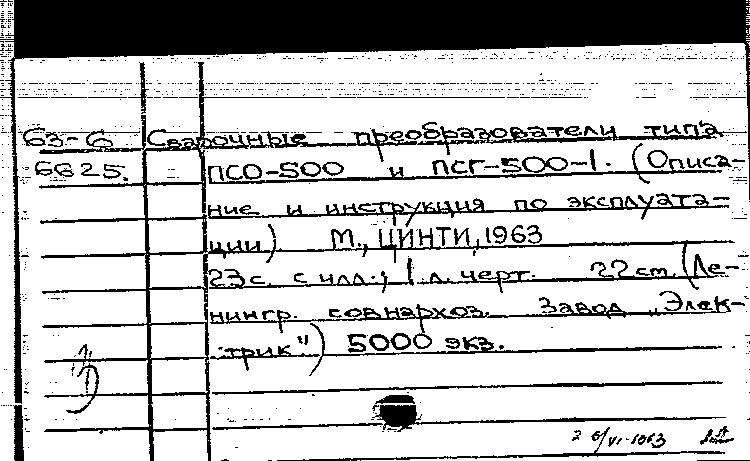 63-6 Сварочные преобразователи типа
6825. ПСО-500 и ПСГ-500-1. (Описа-
ние и инструкция по эксплуата-
ции). М., ЦИНТИ, 1963
23 с. с илл.; 1 л. черт. 22 см. (Ле-
нингр. совнархоз. Завод „Элек-
трик") 5000 экз.